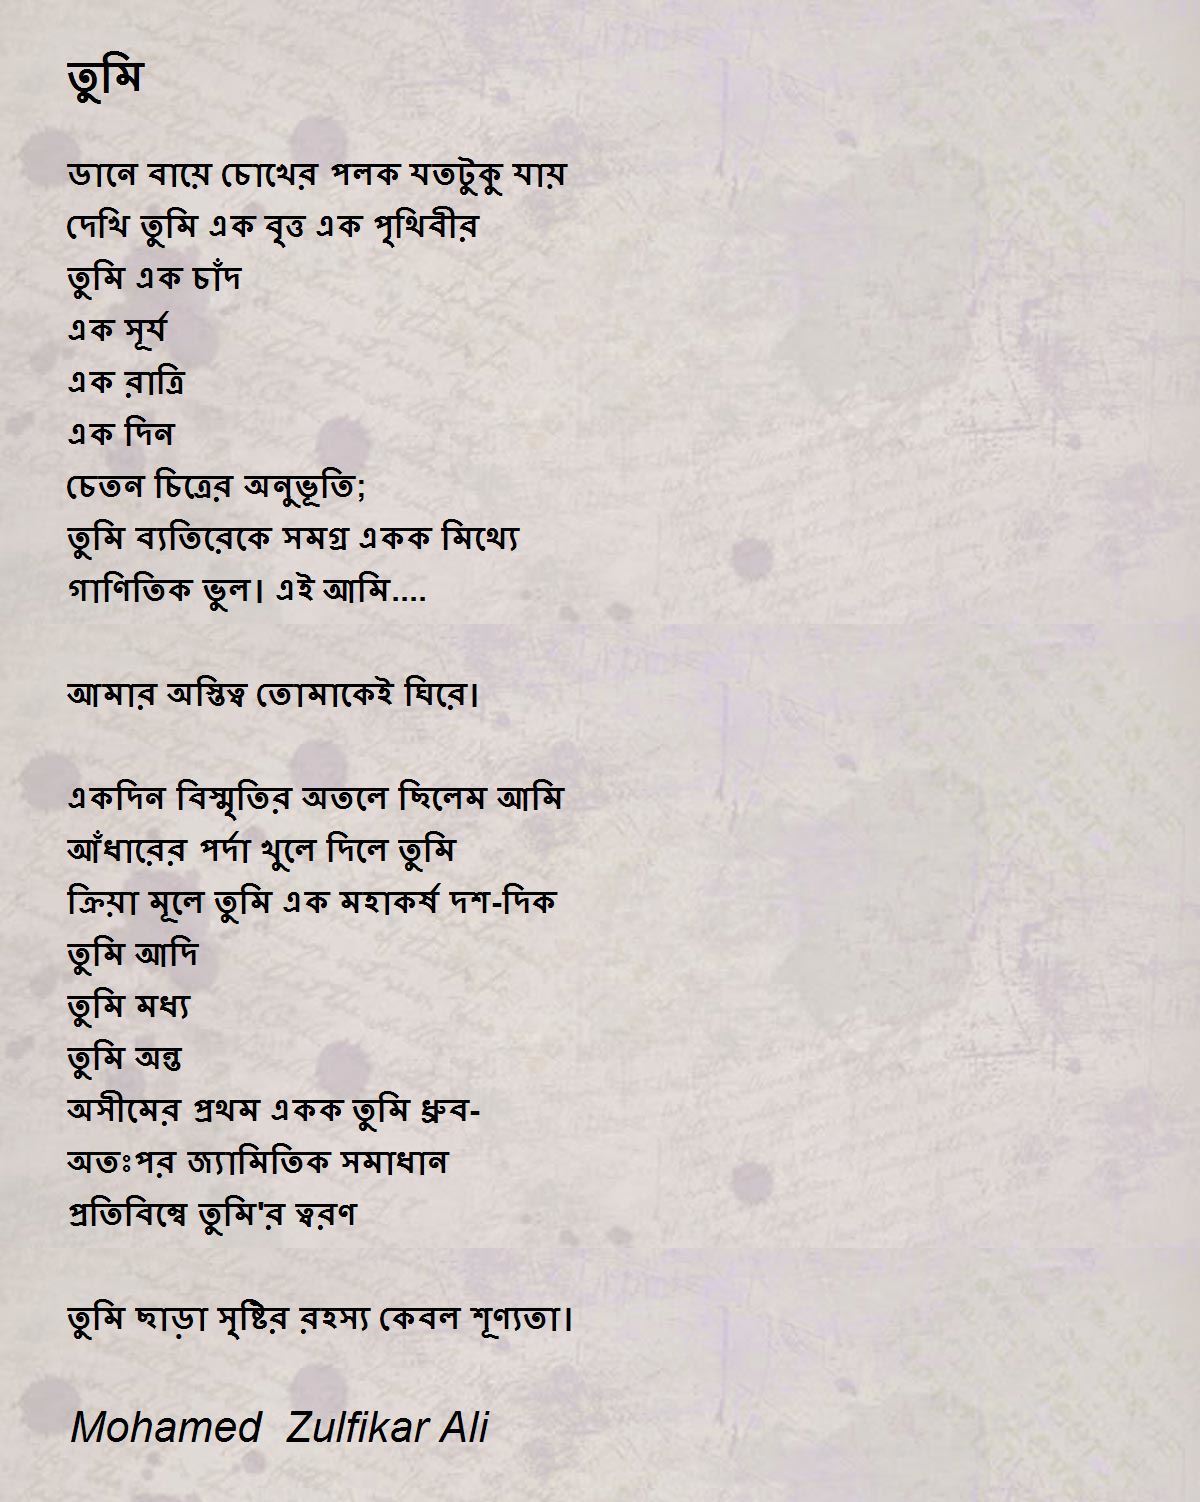 তুমি
ডানে বায়ে চোখের পলক যতটুকু যায়
দেখি তুমি এক বৃত্ত এক পৃথিবীর
তুমি এক চাঁদ
এক সূর্য
এক রাত্রি
এক দিন
চেতন চিত্রের অনুভূতি;
তুমি ব্যতিরেকে সমগ্র একক মিথ্যে
গাণিতিক ভুল। এই আমি....
আমার অস্তিত্ব তোমাকেই ঘিরে।
একদিন বিস্মৃতির অতলে ছিলেম আমি
আঁধারের পর্দা খুলে দিলে তুমি
ক্রিয়া মূলে তুমি এক মহাকর্ষ দশ-দিক
তুমি আদি
তুমি মধ্য
তুমি অন্ত
অসীমের প্রথম একক তুমি ধ্রুব-
অতঃপর জ্যামিতিক সমাধান
প্রতিবিম্বে তুমি'র ত্বরণ
তুমি ছাড়া সৃষ্টির রহস্য কেবল শূণ্যতা।
Mohamed Zulfikar Ali